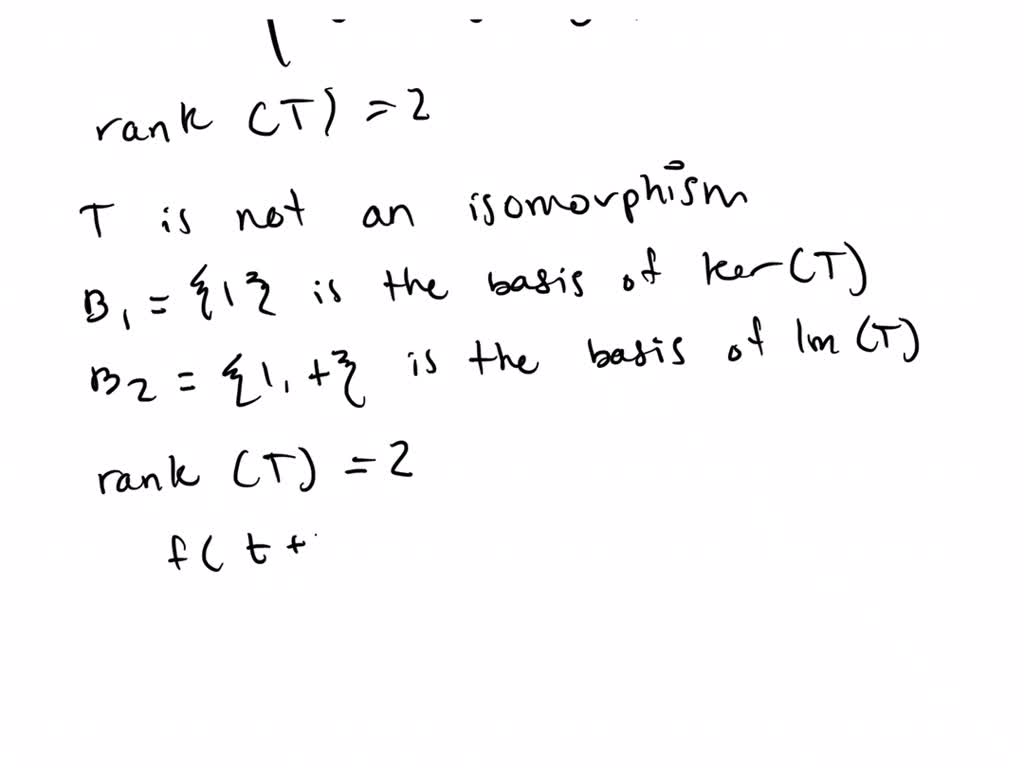 rank (T) = 2
T is not an isomorphism
B₁ = {1} is the basis of ker(T)
B₂ = {1, t} is the basis of Im(T)
rank (T) = 2
f( t +